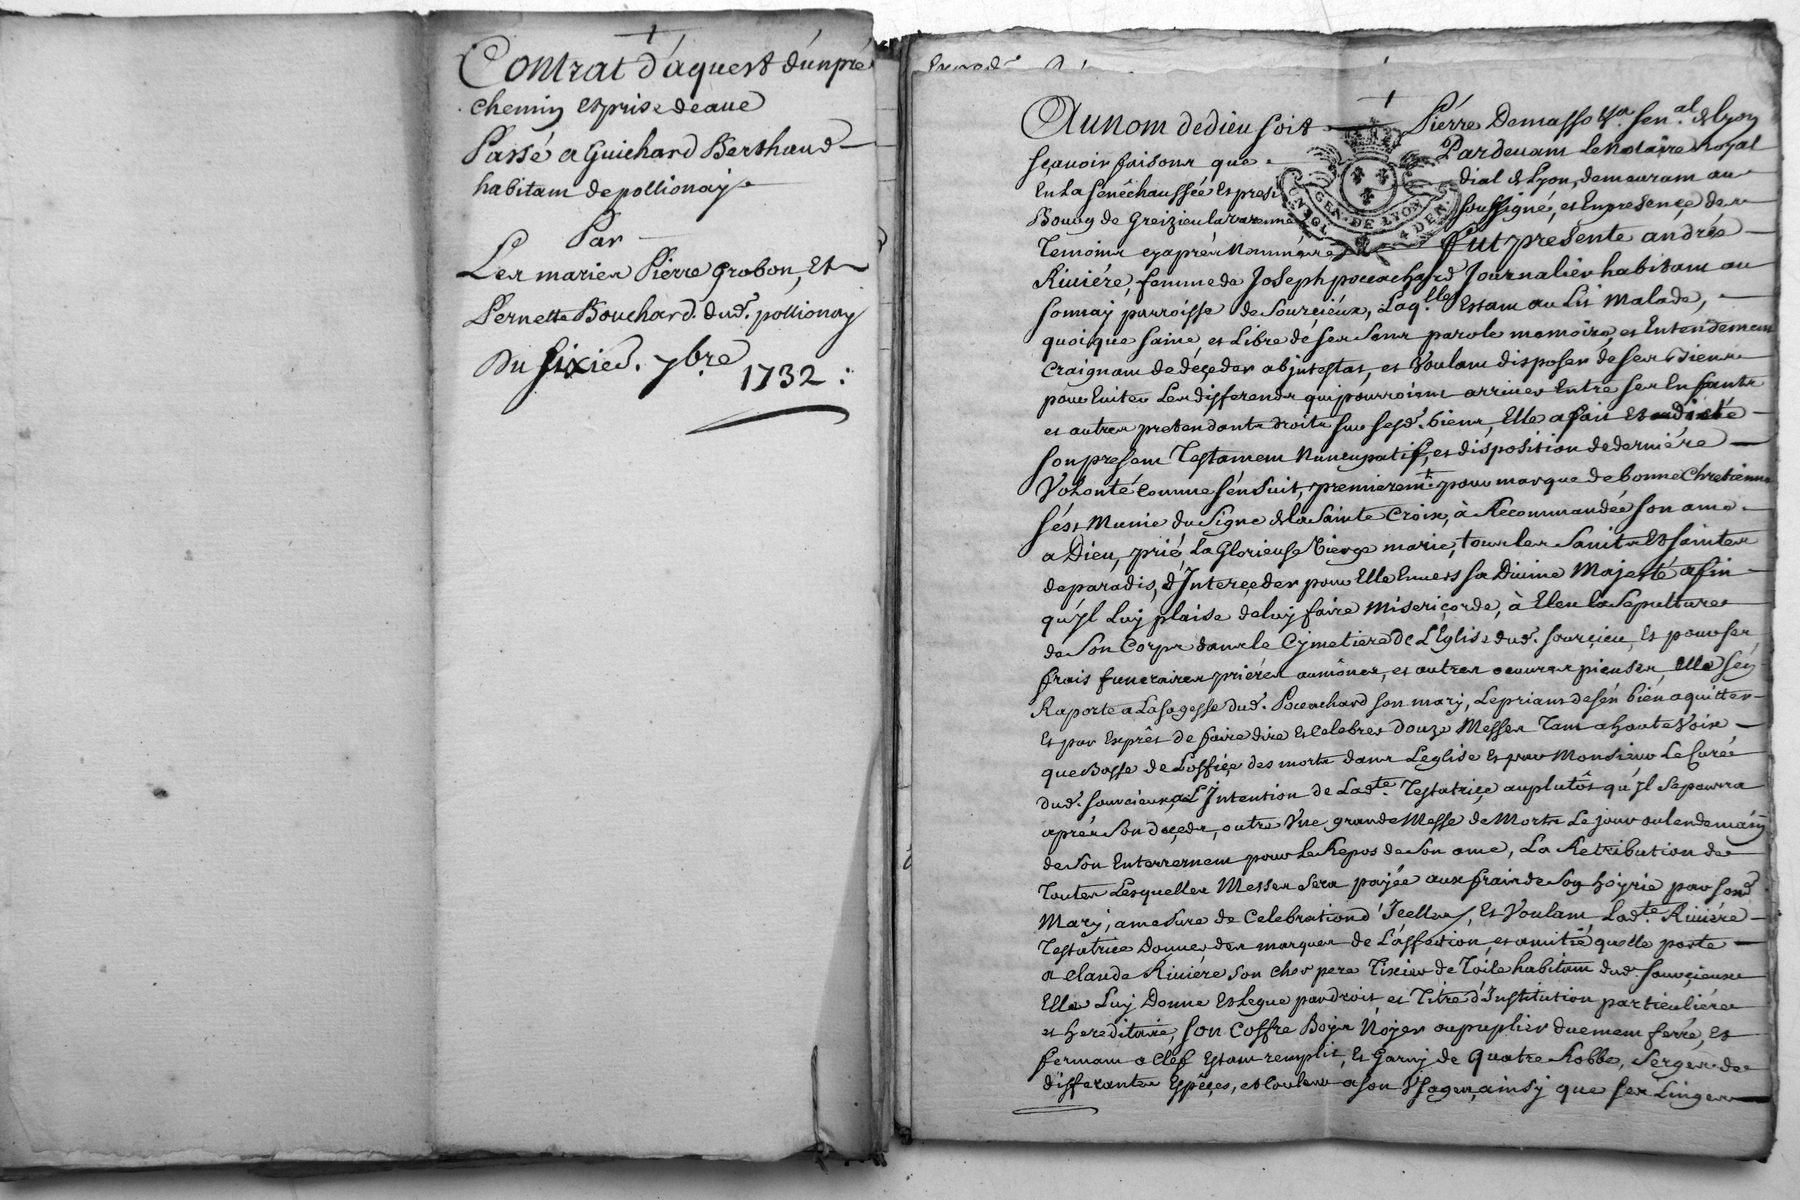 Contrat d'aquest d'un pré
chemin et prise deaue
Passé a Guichard Berthaud
habitant de pollionay
Par
Les mariés Pierre Grobon, Et
Pernette Bouchard. dud. pollionay
Du sixie. 7bre
1732 :
Au nom de dieu soit Pierre Demasso Sen.al de Lyon
sçavoir faisons que Pardevant le Notaire royal
En La senêchaussée et presidial de Lyon, demeurant au
Bourg de Greizieu la varenne soussigné, et En presençe des
Temoins cy aprés Nommés fut presente andrée
GEN. DE LYON
Riviére, femme de Joseph pouachard Journalier habitant au
sonnay parroisse de Sourçieux, Laq.lle Estant au Lit Malade,
quoique saine et Libre de ses sens parole memoire, et Entendement
Craignant de deçeder abjntestat, et Voulant disposer de ses Biens
pour Eviter Les differends qui pourroient arriver Entre ses Enfants
et autres pretendants droits sur sesd. biens, Elle a fait et
son present Testament Nuncupatif, et disposition de derniére
Volonté comme s'en suit, premierem.t pour marque de bonne Chretienne
s'est Munie du Signe de la Sainte Croix, à Recommandée son ame
a Dieu, prié, La Glorieuse Vierge marie, tous les Saints Et saintes
de paradis, d'Interçeder pour Elle Envers sa Divine Majesté afin
qu'jl Luy plaise de luy faire Misericorde, à Eleu la Sepulture
de Son Corps dans le Cymetiere de L'Eglise dud. sourçieu, Et pour ses
frais funeraires priéres aumônes, et autres oeuvres pieuses, Elle s'en
Raporte a La sagesse dud. Pouachard son mary, Le priant de s'en bien aquitter
Et par Exprês de faire dire Et Celebrer douze Messes Tant a haute Voix
que Basse de L'offiçe des morts dans L'eglise Et par Monsieur Le Curé
dud. sourcieux, a L'Intention de Lad.te Testatriçe au plutôt qu'jl se pourra
aprés Son deçeds, outre Une grande Messe de Morts Le jour ou lendemain
de Son Enterrement pour Le Repos de Son ame, La Retribution de
Toutes Lesquelles Messes sera payée aux frais de Son hoyrie par sond.
Mary, a mesure de Celebration d'Icelles, Et Voulant Lad.te Riviére
Testatrice Donner des marques de L'affection, et amitié qu'elle porte
a claude Riviére Son cher pere Tixier de Toile habitant dud. sourçieux
Elle Luy Donne Et Legue par droit et Titre d'Institution particuliére
et hereditaire, son Coffre Bois Noyer ou puplier duement ferré, Et
fermant a Clef Estant remplit, Et Garny de quatre Robbes, Serges de
differantes Espéçes, et Couleur a Son Usages, ainsy que ses Linges